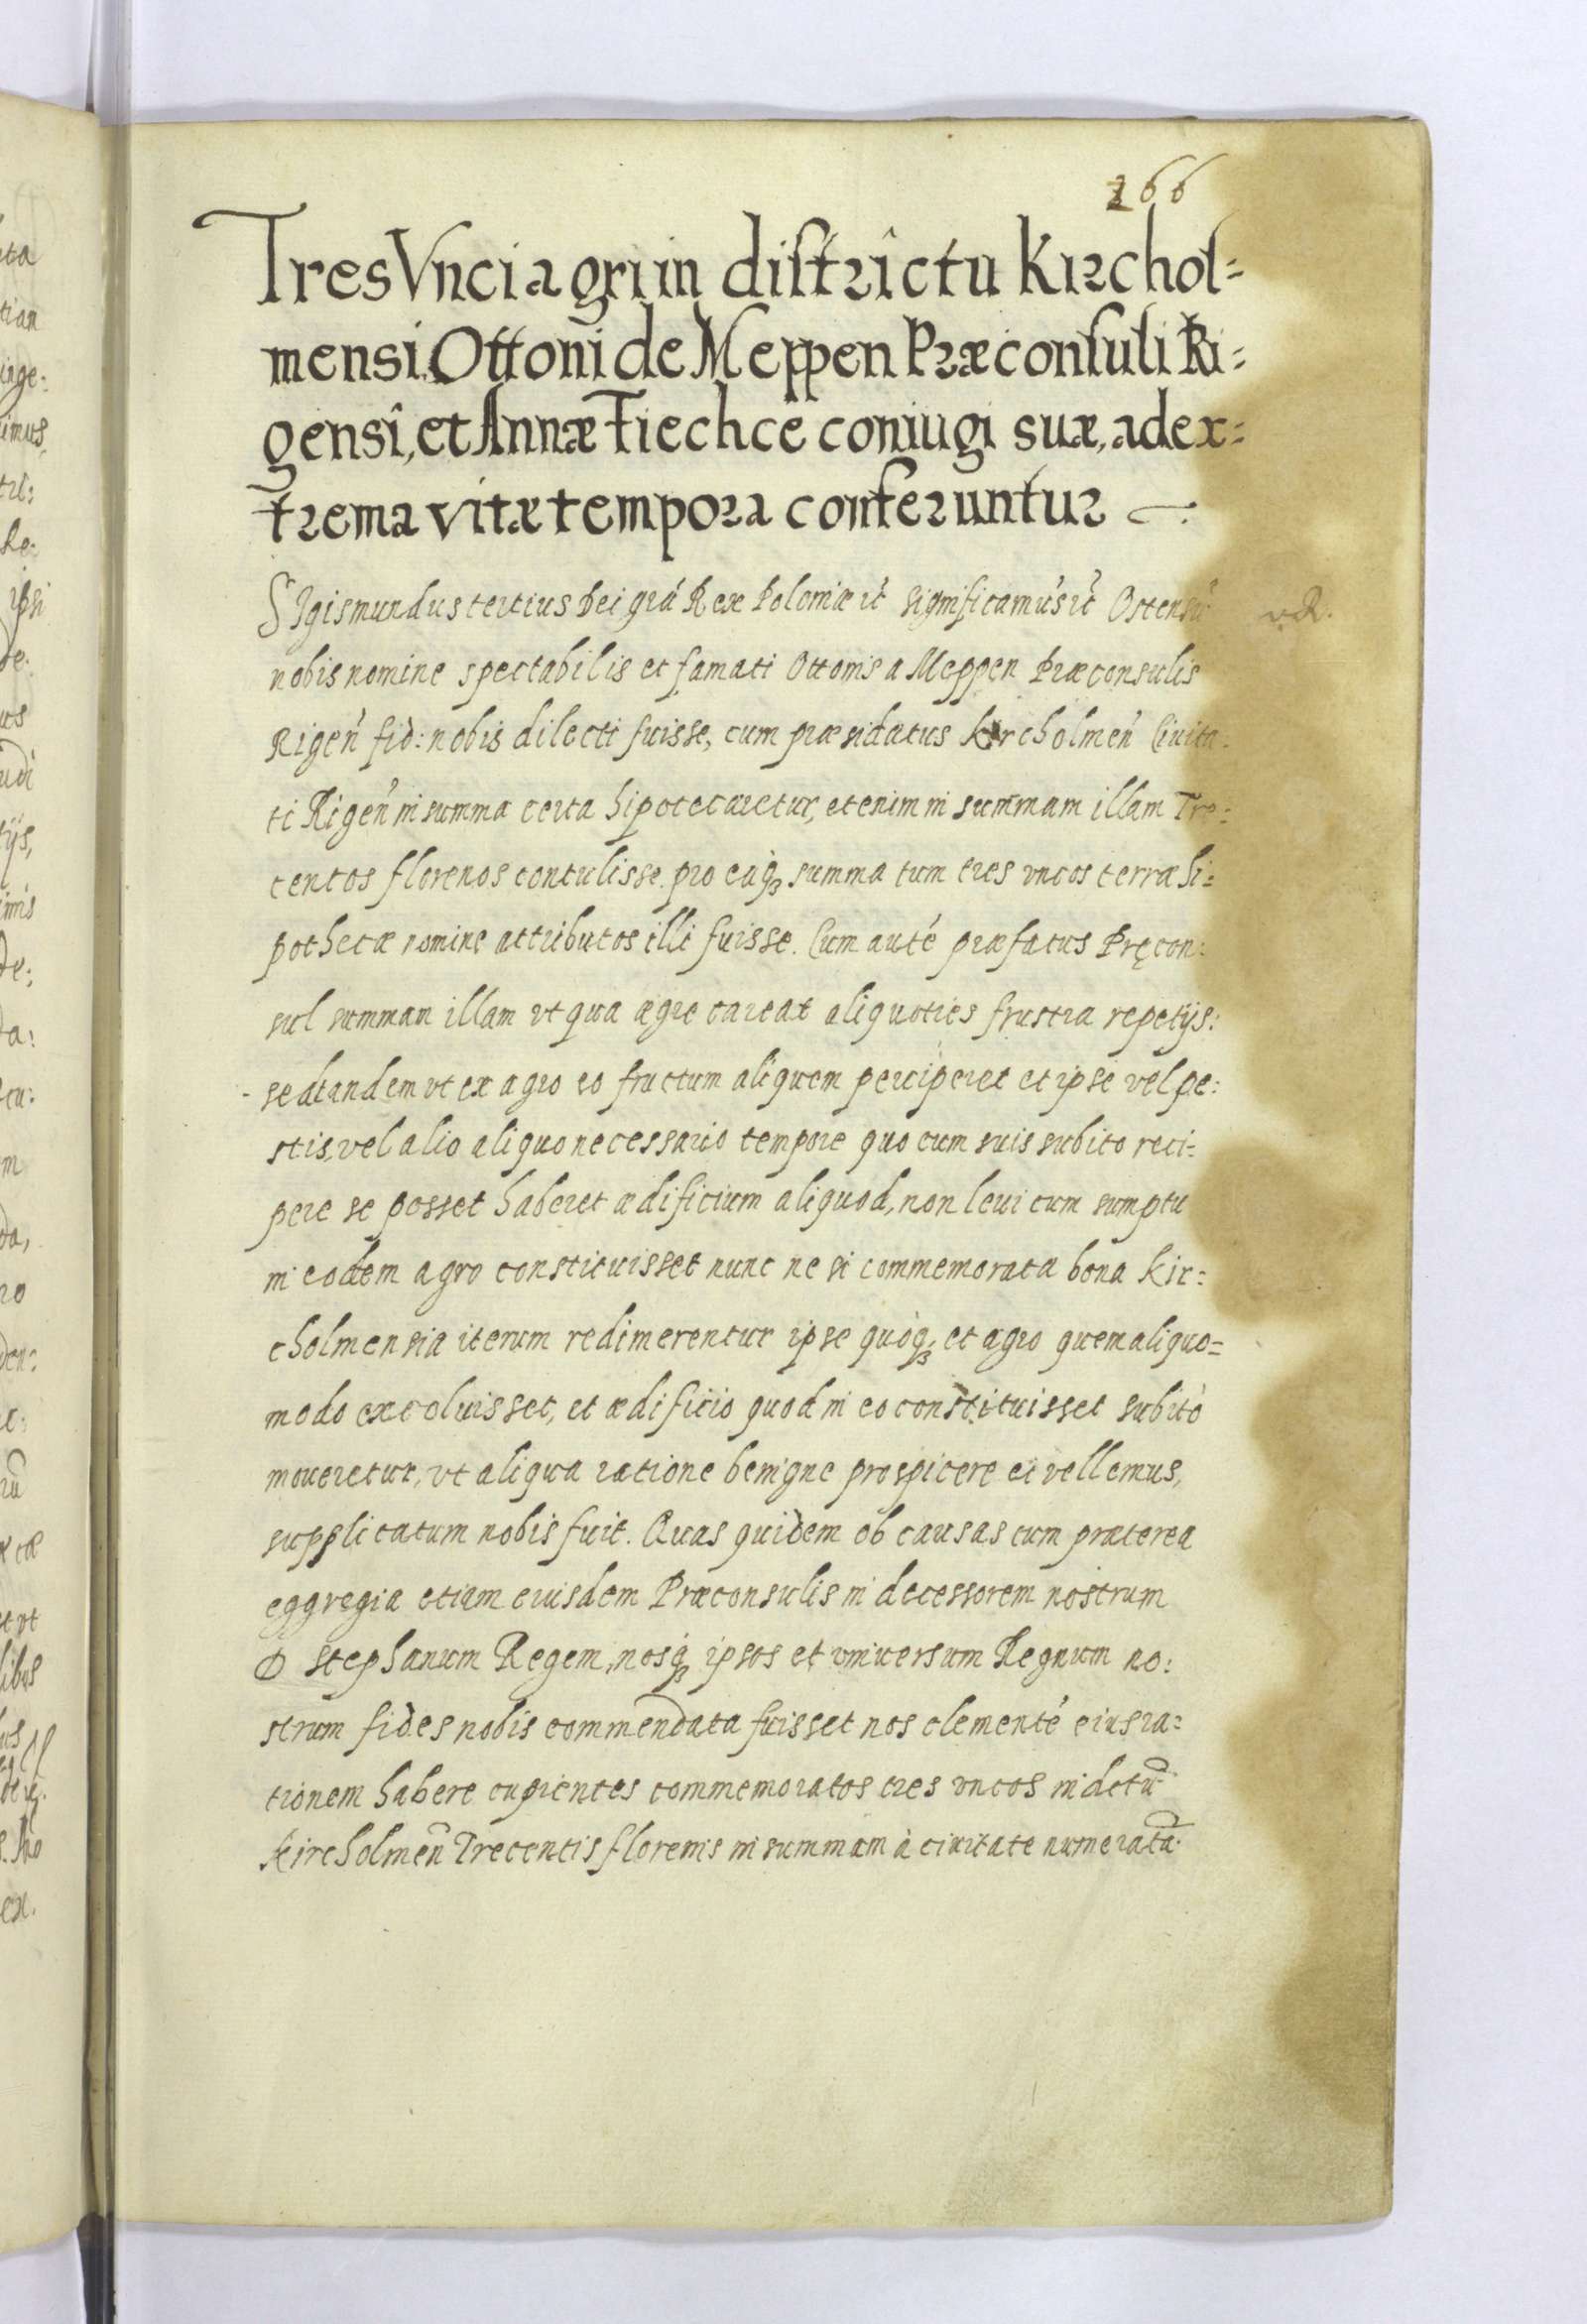 266
Tres Vnci agri in districtu Kirchol=
mensi Ottoni de Meppen Præconsuli Ri=
gensi, et Annæ Tiechce coniugi suæ, ad ex=
trema vitæ tempora conferuntur
SIgismundus tertius Dei grá Rex Poloniæ &c̃ significamus &c̃ Ostensũ
nobis nomine spectabilis et famati Ottonis a Meppen Præconsulis
Rigeñ fid: nobis dilecti fuisse, cum præsidatus Kircholmeñ Ciuita:
ti Rigeñ in summa certa hipotecaretur, etenim in summam illam Tre:
centos florenos contulisse. pro eaq₃ summa tum tres vncos terræ hi=
pothecæ nomine attributos illi fuisse. Cum auté præfatus Pręcon:
sul summam illam vt qua ægre careat aliquoties frustra repetijs:
sed tandem vt ex agro eo fructum aliquem perciperet et ipse vel pe:
stis, vel alio aliquo necessario tempore quo cum suis subito reci=
pere se posset haberet ædificium aliquod, non leui cum sumptu
in eodem agro constituisset nunc ne si commemorata bona Kir=
cholmensia iterum redimerentur ipse quóq₃ et agro quem aliquo=
modo excoluisset, et ædificio quod in eo constituisset subitò
moueretur, vt aliqua ratione benigne prospicere ei vellemus,
supplicatum nobis fuit. Quas quidem ob causas cum præterea
eggregia etiam eiusdem Præconsulis in decessorem nostrum
D Stephanum Regem, nosq₃ ipsos et vniuersum Regnum no:
strum fides nobis commendata fuisset nos clementé eius ra=
tionem habere cupientes commemoratos tres vncos in dctũ
Kircholmeñ Trecentis florenis in summam à ciuitate numeratã